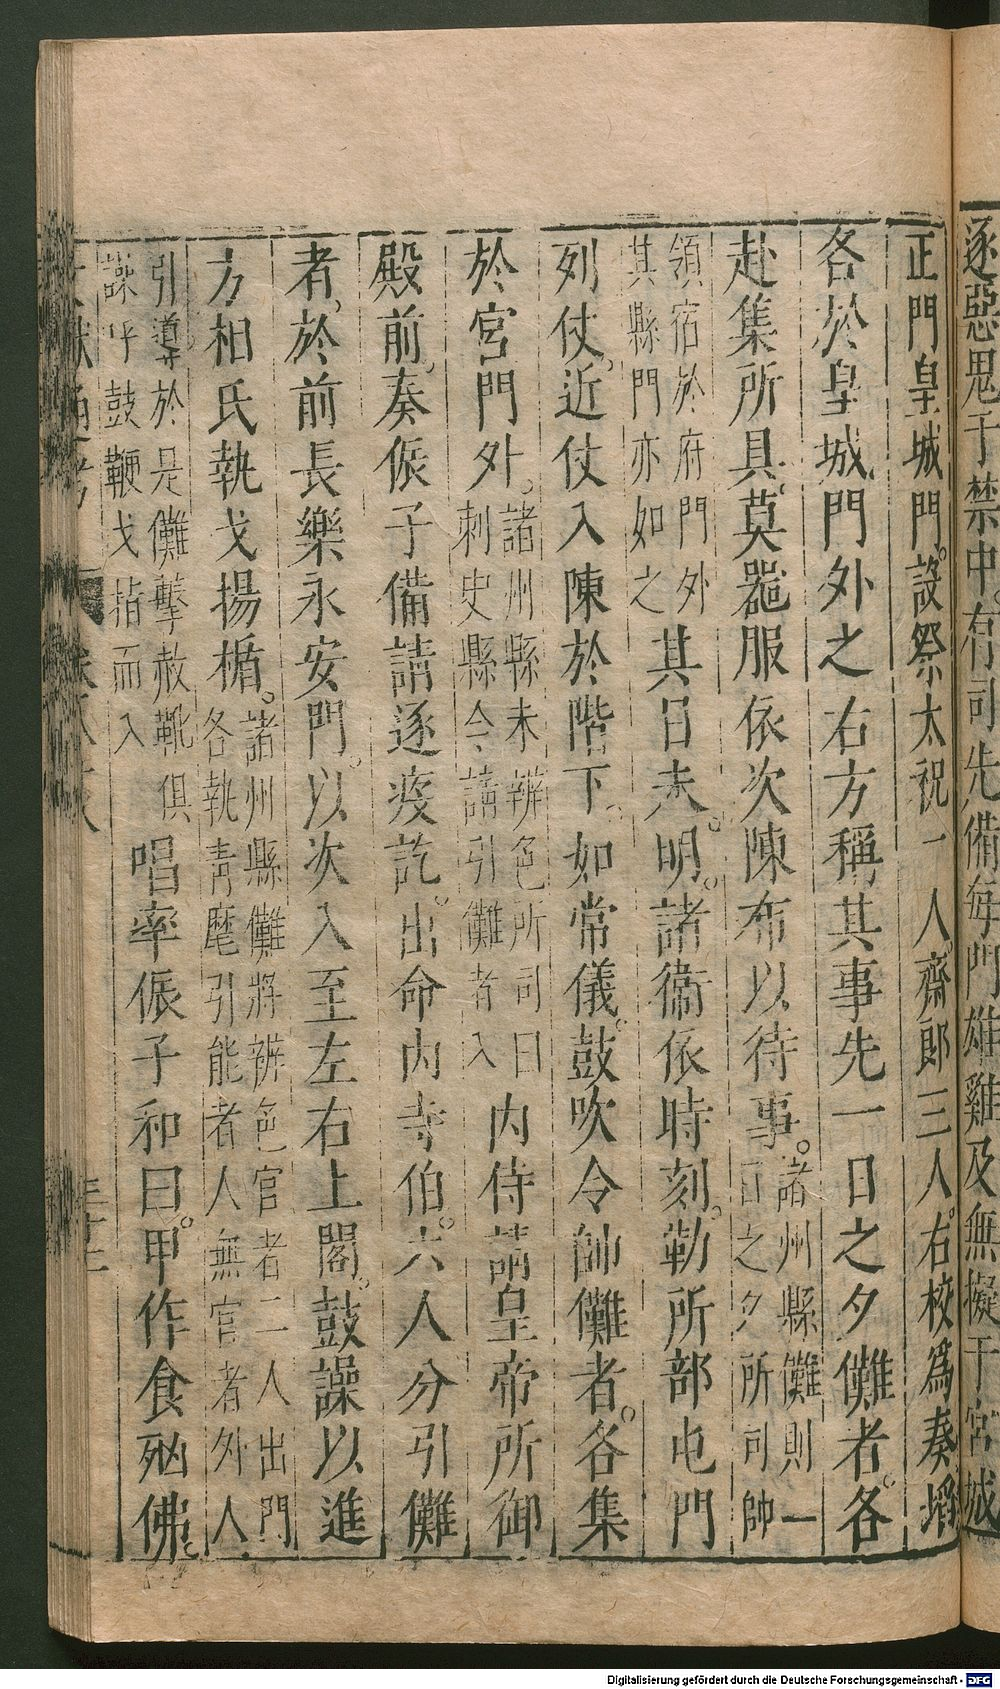 逐惡鬼于禁中。有司先備每門雄雞及無擬于宮城
正門皇城門。設祭太祝一人齋郎三人。右校爲奏埳
各於皇城門外之右方稱其事先一日之夕儺者。各
赴集所具。莫器服依次陳布以待事。諸州縣儺則一
日之夕所司帥
領宿於府門外
其縣門亦如之其日未。明。諸衛依時刻。勒所部屯門
列仗。近仗入陳於階下。如常儀。鼓吹令帥儺者。各集
於宮門外。諸州縣未辨色所司曰
刺史縣令請引儺者入內侍請皇帝所御
殿前。奏侲子備請逐疫訖。出命內寺伯。六人分引儺
者於前長樂永安門。以次入至左右上閣。鼓譟以進
方相氏執戈揚楯。諸州縣儺將辨色官者二人出門
各執青麾引能者人無官者外人
引導於是儺擊赦靴俱
譟呼鼓鞭戈指而入唱率侲子和曰。甲作食殈佛